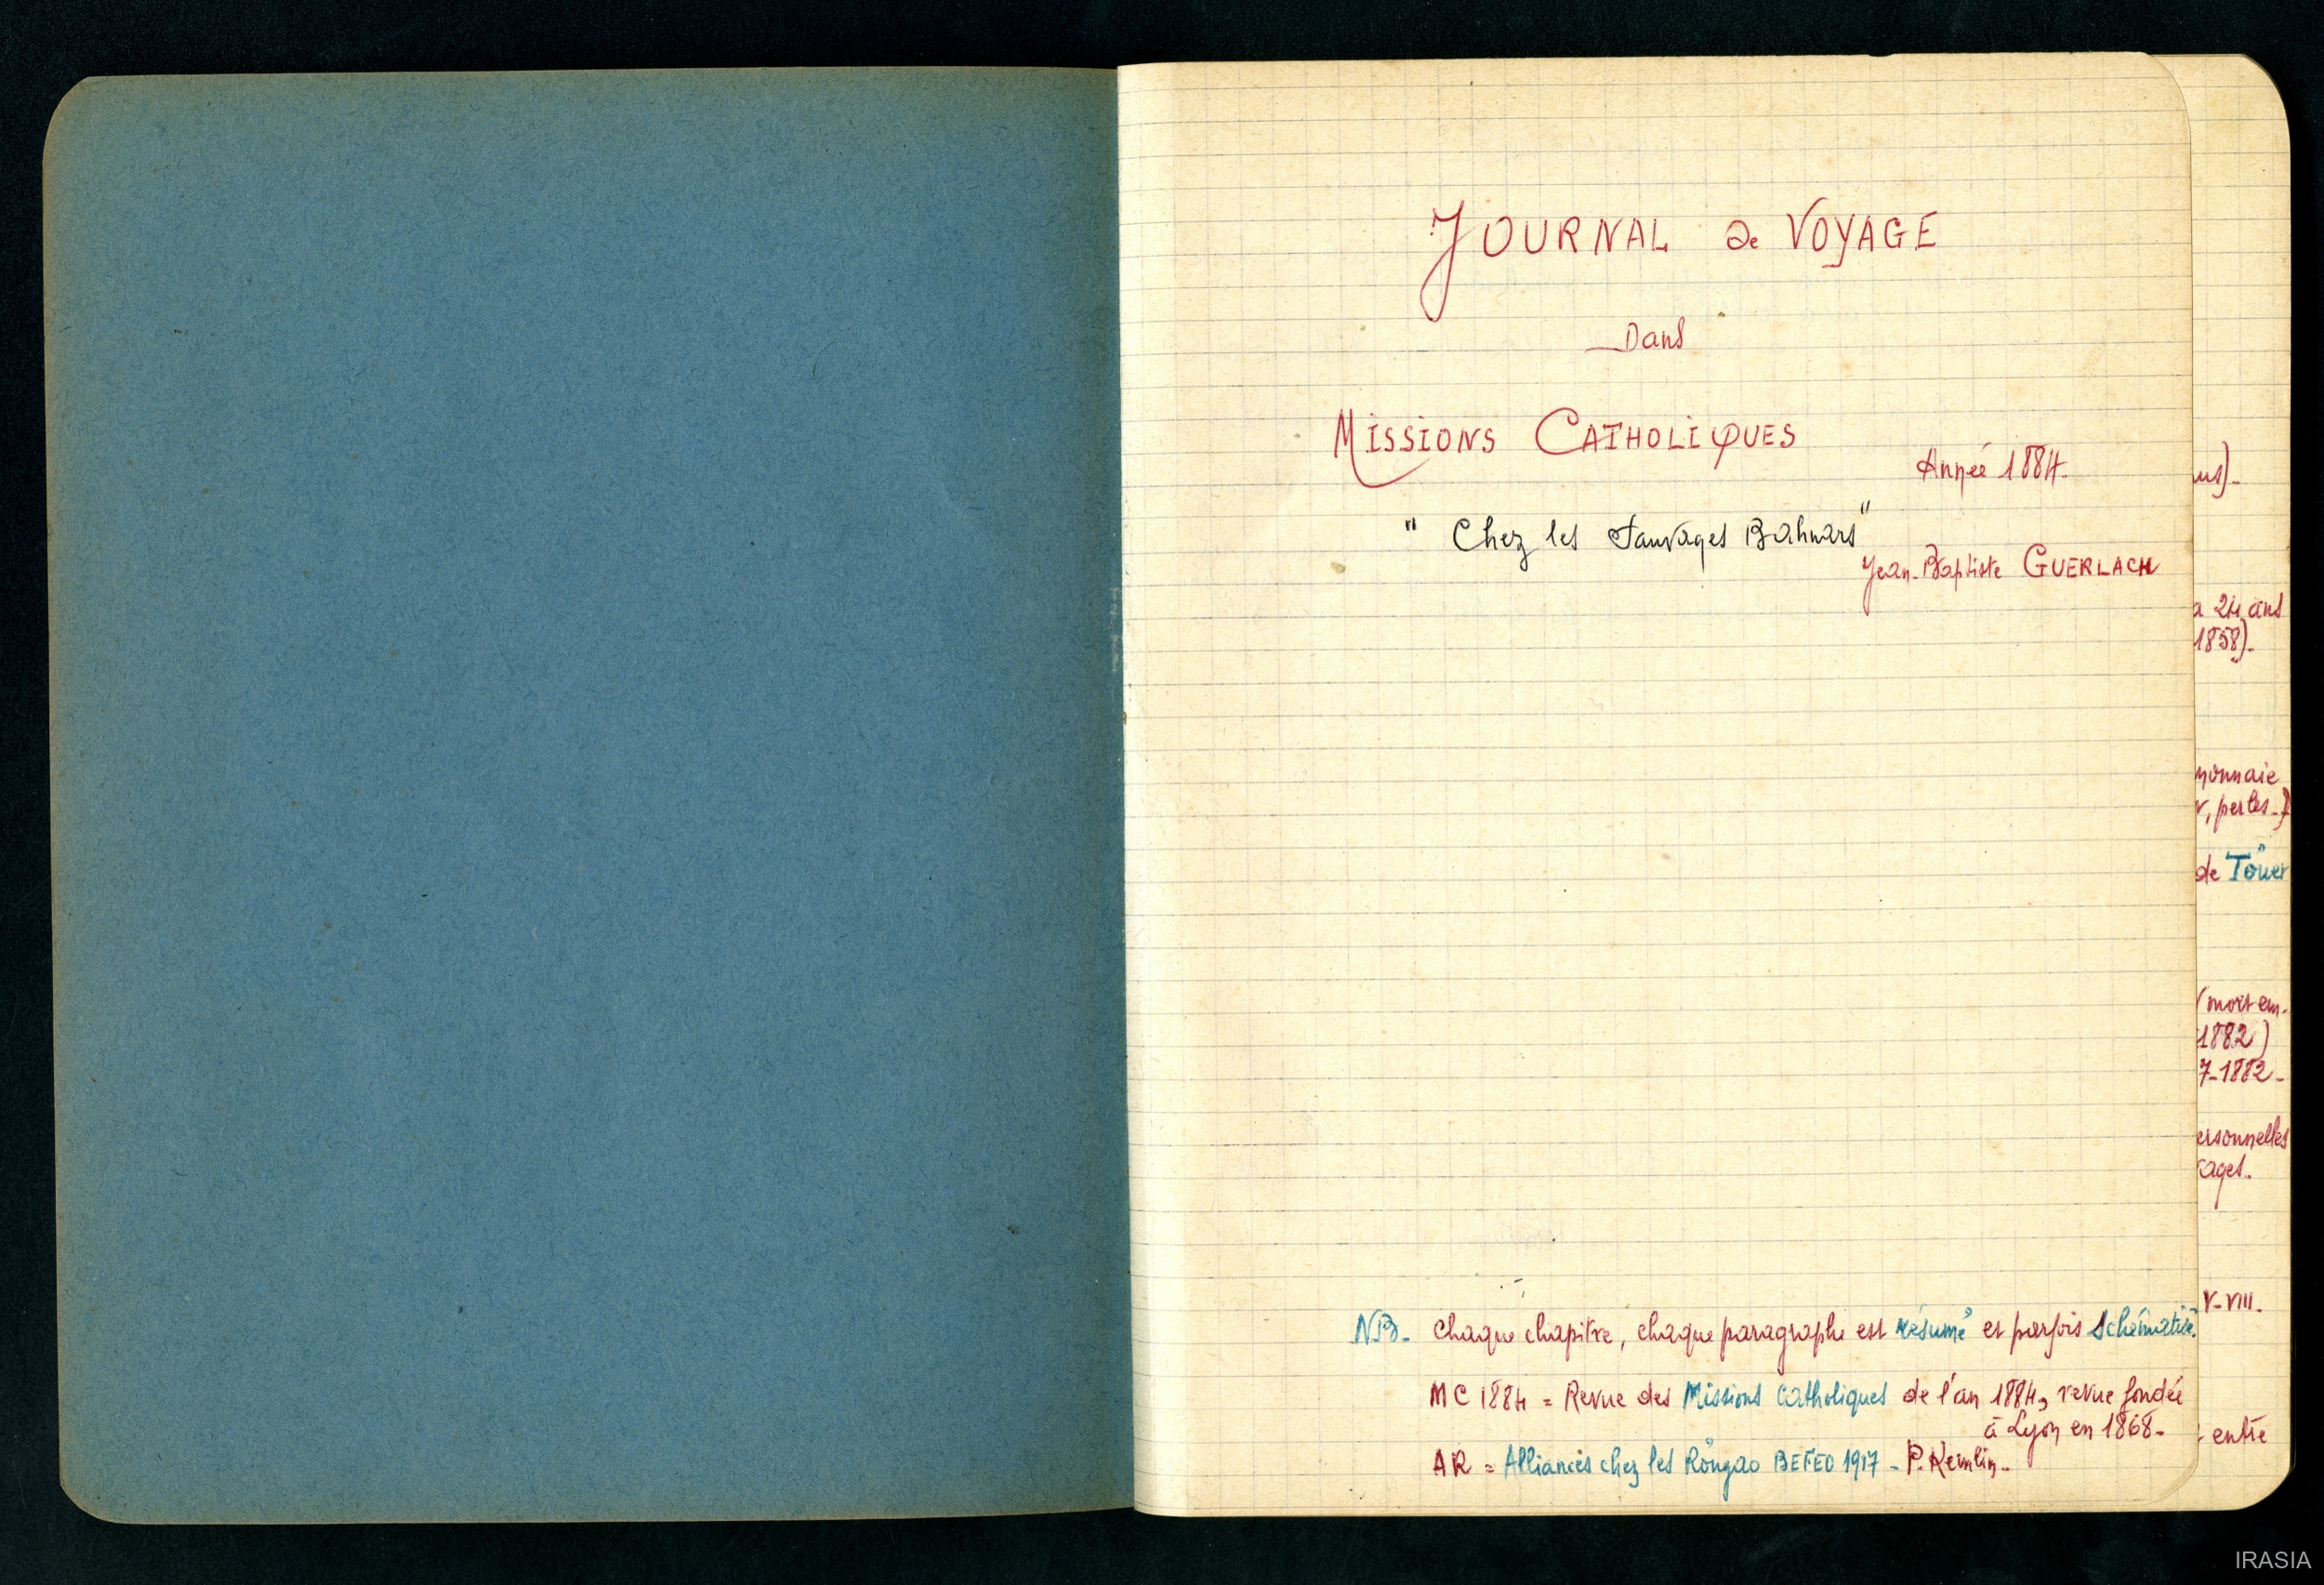 JOURNAL de VOYAGE
Dans
MISSIONS CATHOLIQUES
Année 1884.
" Chez les Sauvages Bahnars"
Jean-Baptiste GUERLACH
NB. Chaque chapitre, chaque paragraphe est résumé et parfois schématisé.
MC 1884 = Revue des Missions Catholiques de l'an 1884, revue fondée
à Lyon en 1868.
AR = Alliances chez les Röngao BEFEO 1917 - P. Kemlin.
us).
a 24 ans
1858).
monnaie
r, perles.)
de Töuer
(mort en.
1882)
7-1882-
ersonnelles
vages.
V-VIII.
entre
IRASIA